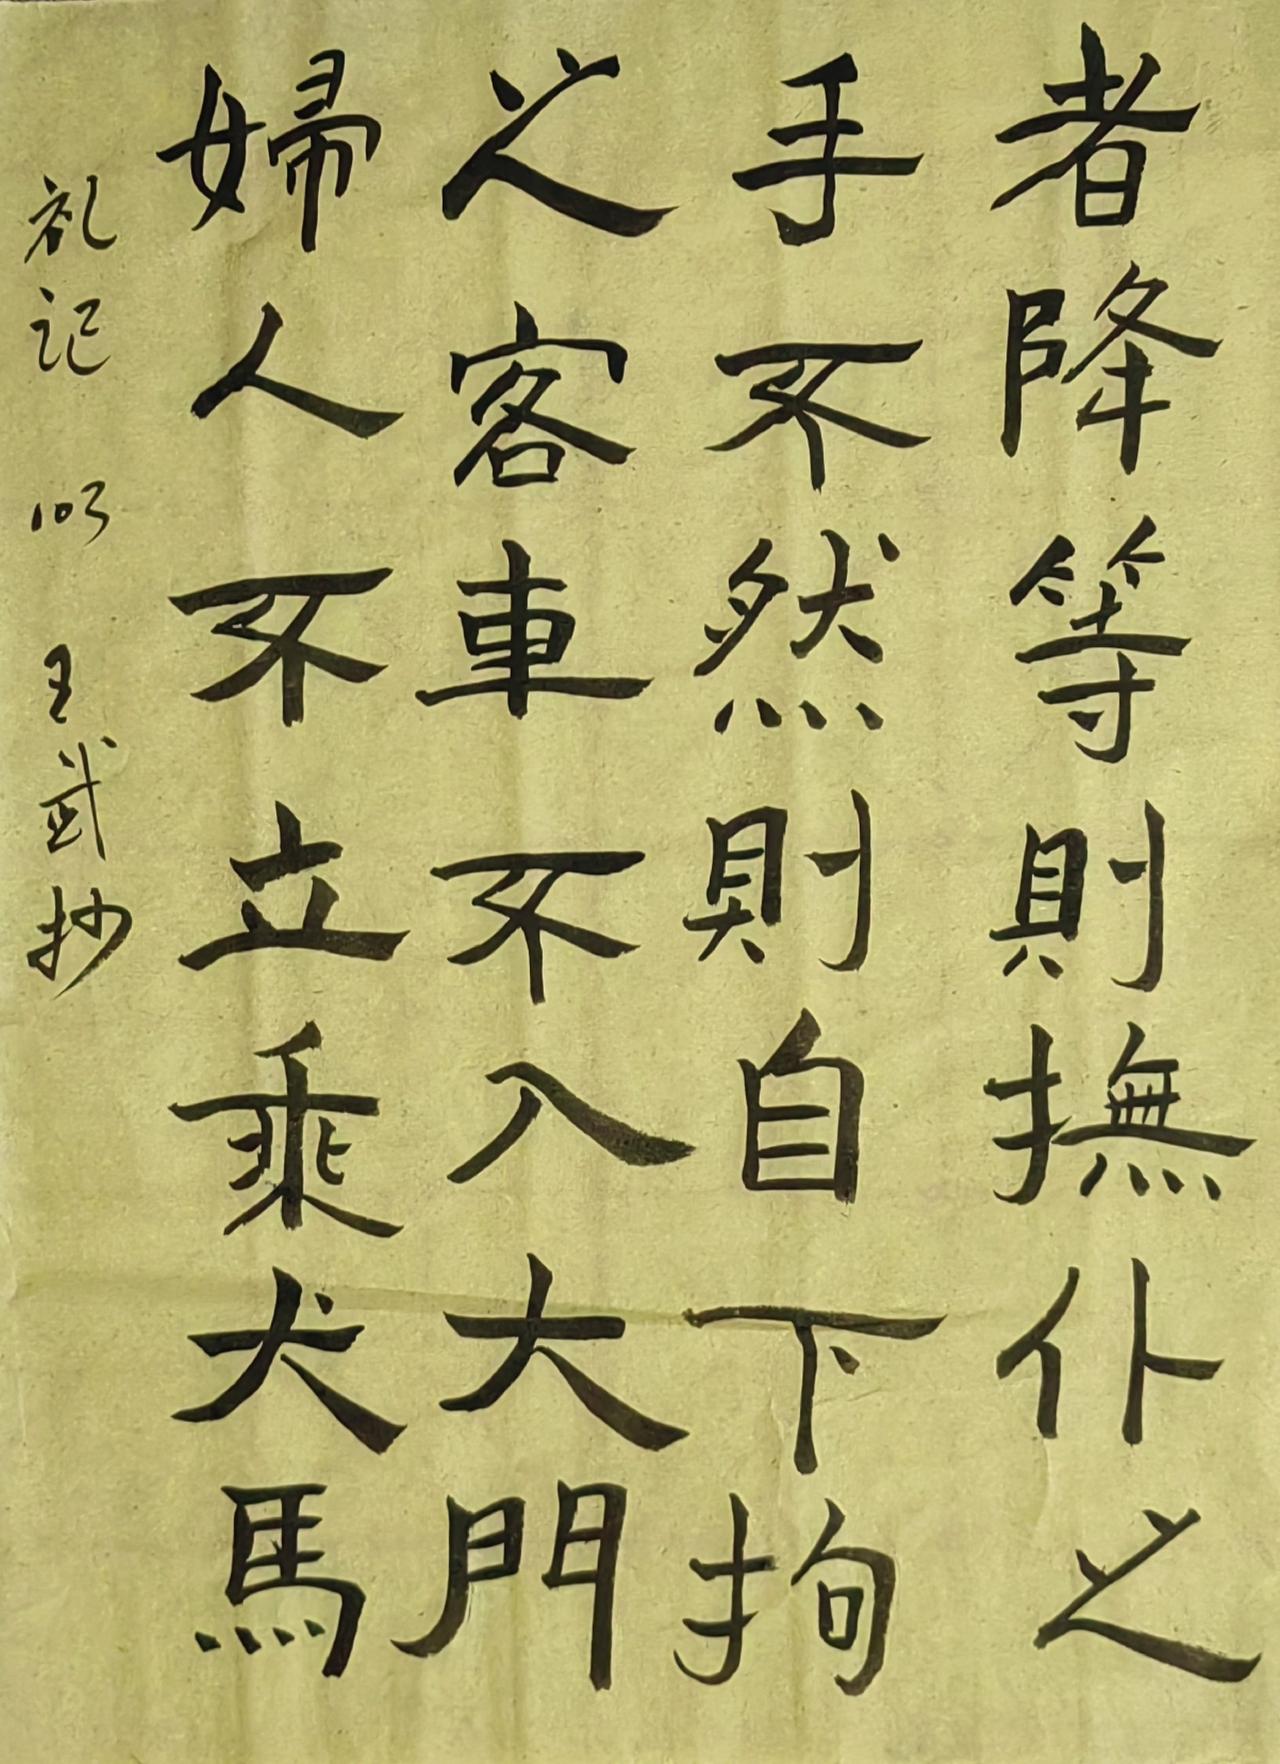 者降等則撫仆之
手不然則自下拘
之客車不入大門
婦人不立乘犬馬
礼记 103 王武抄